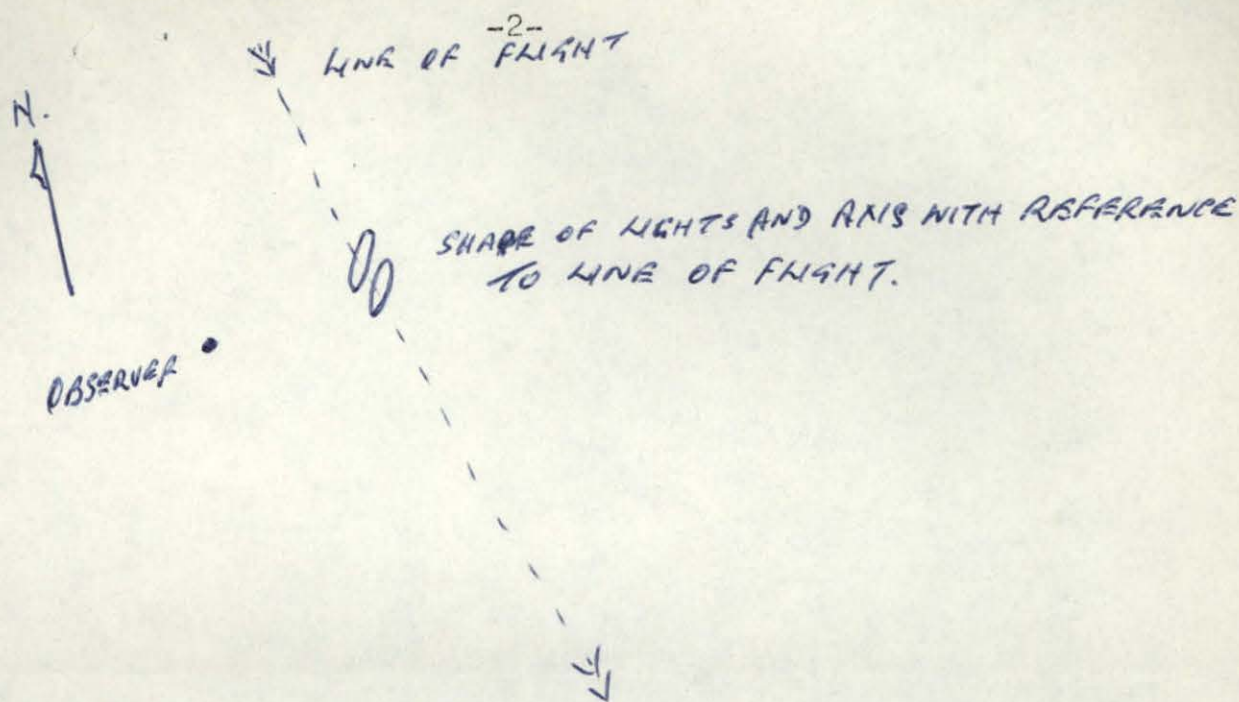 -2-
LINE OF FLIGHT
N.
SHAPE OF LIGHTS AND AXIS WITH REFERENCE
TO LINE OF FLIGHT.
OBSERVER